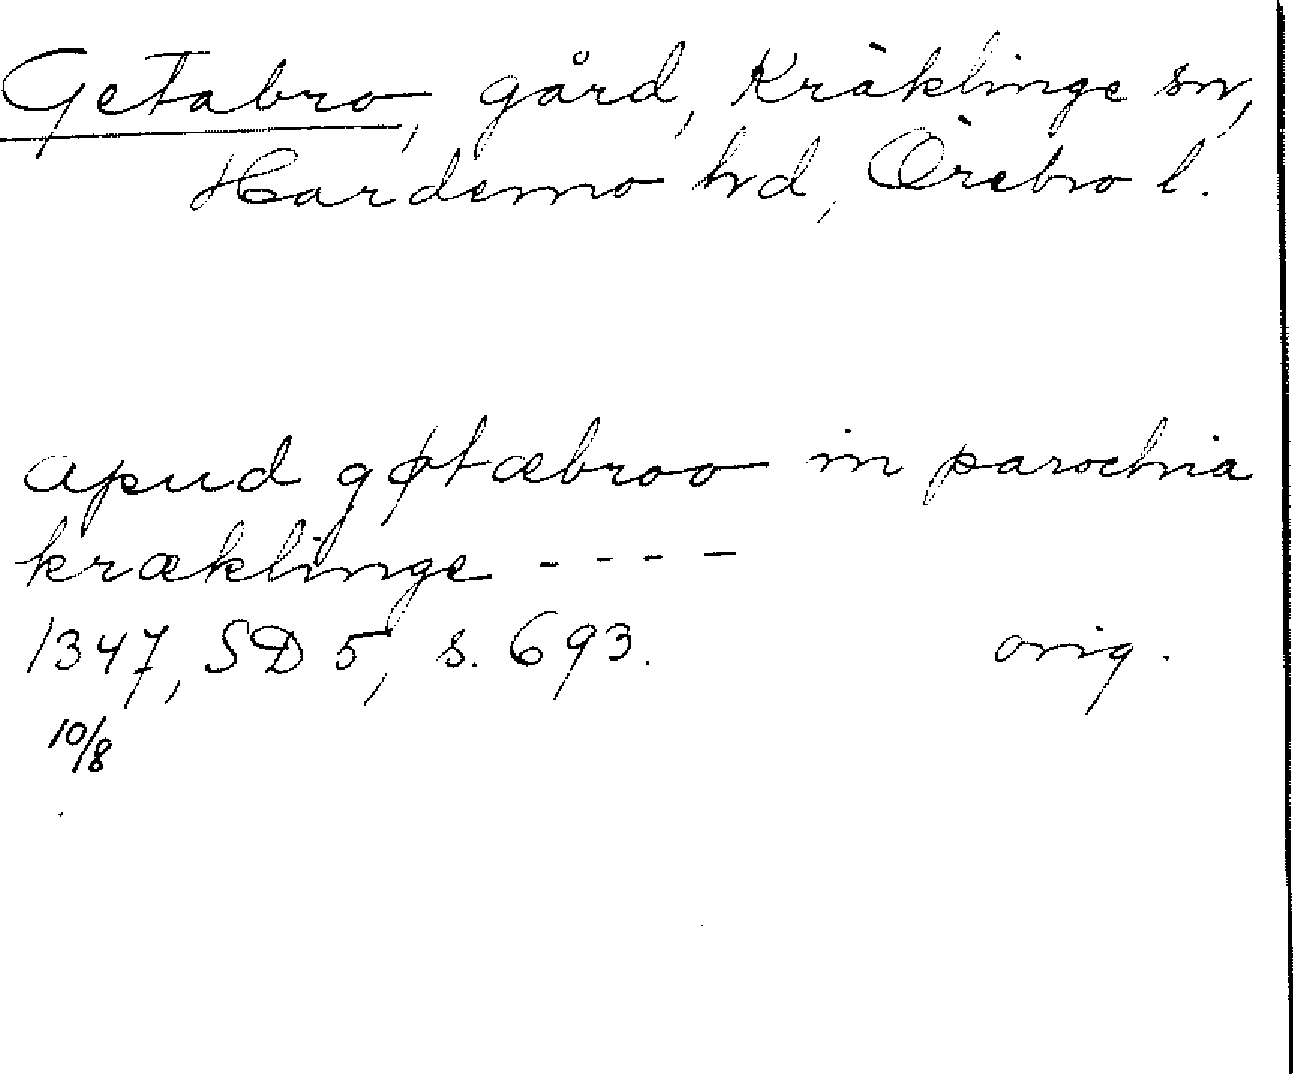 Getabro, gård, Kräklinge sn,
Hardemo hd, Örebro l.
apud gøtæbroo in parochia
kræklinge - - - -
1347, SD 5, s. 693. orig.
10/8